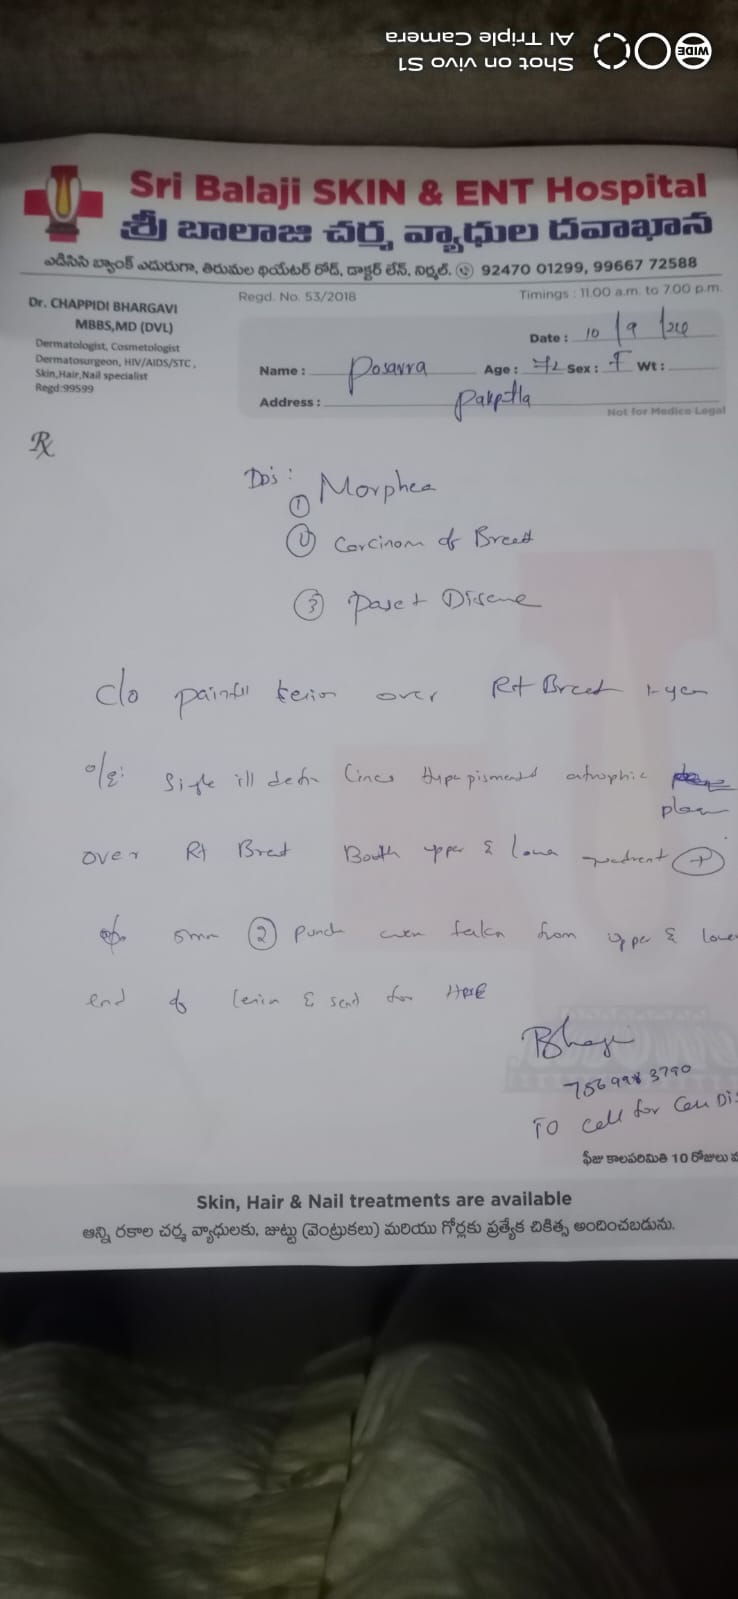 Shot on vivo S1
AI Triple Camera
WIDE
Sri Balaji SKIN & ENT Hospital
శ్రీ బాలాజి చర్మ వ్యాధుల దవాఖాన
ఎడిసిసి బ్యాంక్ ఎదురుగా, తిరుమల థియేటర్ రోడ్, డాక్టర్ లేన్, నిర్మల్. 92470 01299, 99667 72588
Regd. No. 53/2018
Timings : 11.00 a.m. to 7.00 p.m.
Dr. CHAPPIDI BHARGAVI
MBBS,MD (DVL)
Dermatologist, Cosmetologist
Dermatosurgeon, HIV/AIDS/STC,
Skin,Hair,Nail specialist
Regd:99599
Date : 10/9/
Name : Posavva Age : 72 Sex : F Wt :
Address :
Not for Medico Legal
Rx
DD's :
① Morphea
② Carcinom of Breast
③ Paget Disease
c/o painful lesion over Rt Breast 1 year
o/E: Single ill defn Hyperpigmented atrophic
plaq
over Rt Breast Booth upper & lower quadrent +
5mm ② Punch were taken from upper & lower
end of lesion & send for HPE
7569983790
TO Call for
ఫీజు కాలపరిమితి 10 రోజులు
Skin, Hair & Nail treatments are available
అన్ని రకాల చర్మ వ్యాధులకు, జుట్టు (వెంట్రుకలు) మరియు గోర్లకు ప్రత్యేక చికిత్స అందించబడును.